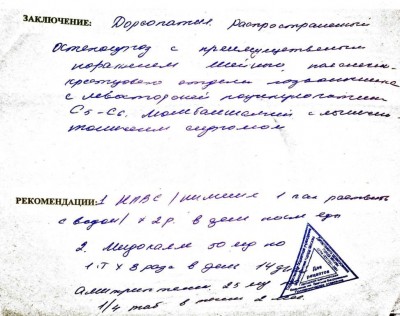 ЗАКЛЮЧЕНИЕ: Дорсопатия. Распространенный
Остеохондроз с преимущественным
поражением шейного, пояснично-
крестцового отдела позвоночника
с левосторонней радикулопатией
C5-C6. Люмбоишиалгией с мышечно-
тоническим синдромом
РЕКОМЕНДАЦИИ: 1 НПВС /нимесил 1 пак растворить
с водой/ х 2 р. в день после еды
2. Мидокалм 50 мг по
1 т х 3 раза в день 14 дн
амитриптилин 25 мг
1/4 таб в ночи 2
Для
рецептов